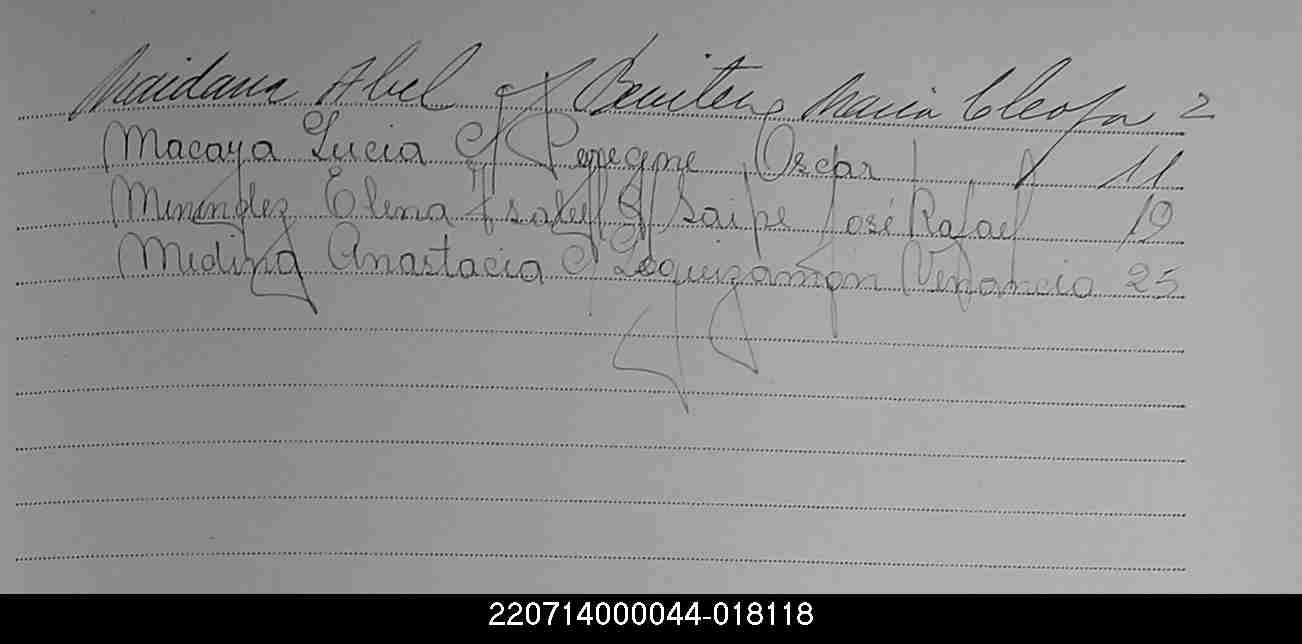 Maidana Abel c/ Benitez Maria Cleofa 2
Macaya Lucia c/ Oscar 11
Menendez Elena Isabel c/ Saipe José Rafael 19
Medina Anastacia c/ Leguizamon Venancio 25
220714000044-018118